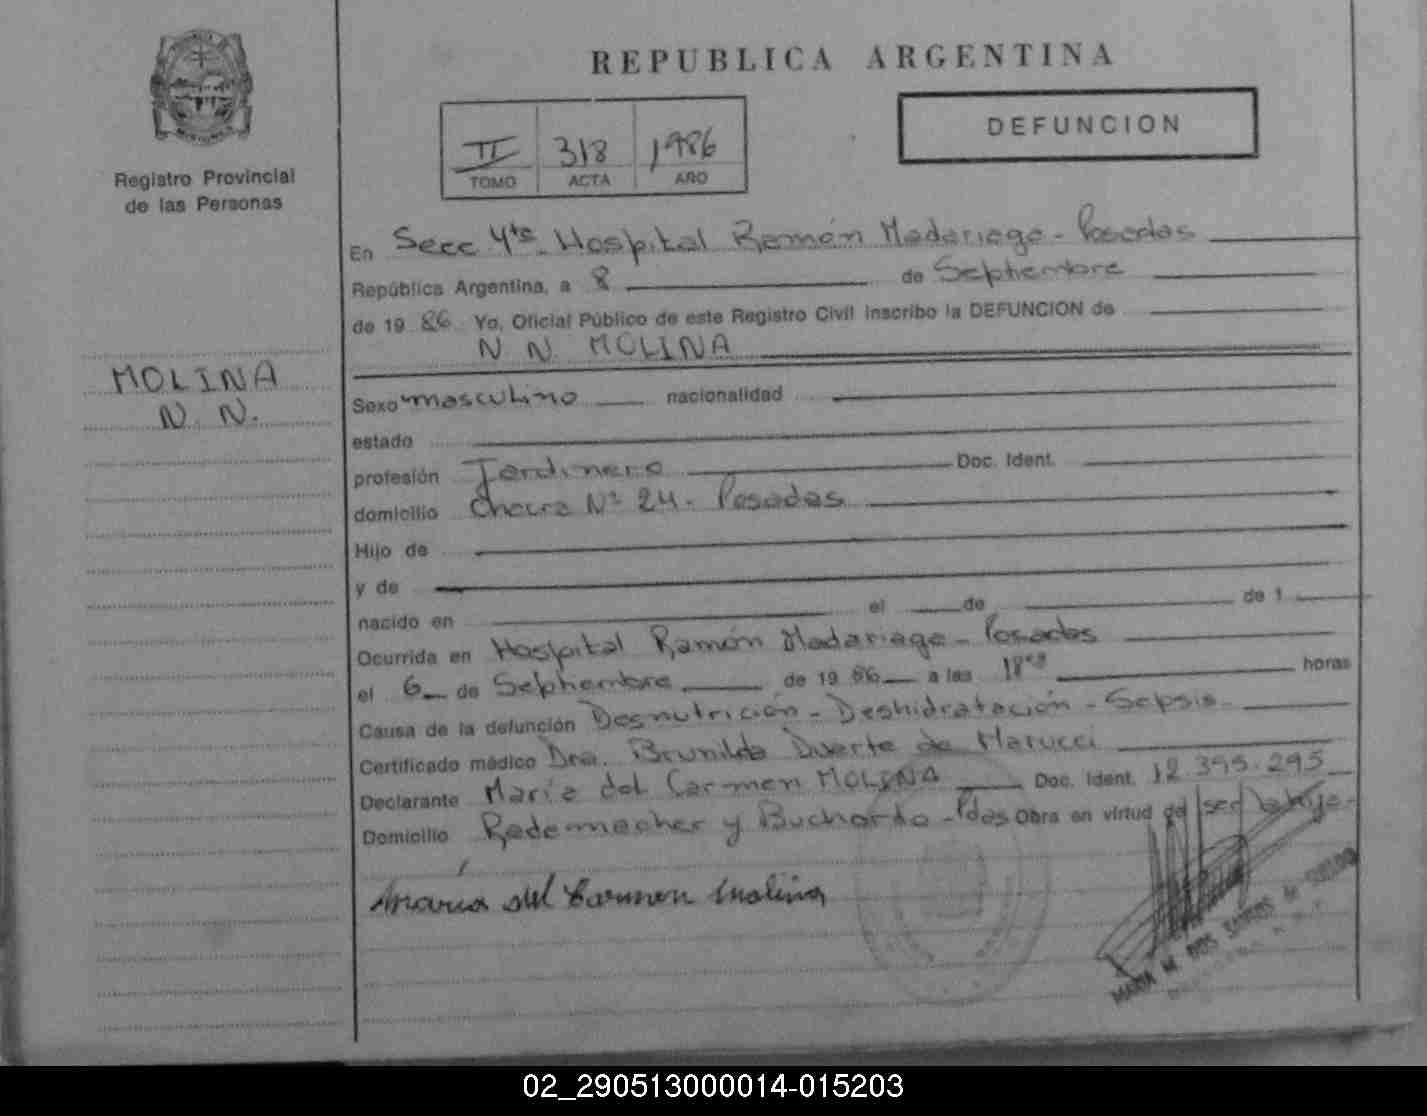 REPUBLICA ARGENTINA
DEFUNCION
II 318 1986
TOMO ACTA AÑO
Registro Provincial
de las Personas
MOLINA
N. N.
En Secc 4ta. Hospital Ramón Madariaga - Posadas
República Argentina, a 8 de Septiembre
de 19 86 Yo, Oficial Público de este Registro Civil inscribo la DEFUNCION de
N. N. MOLINA
Sexo masculino nacionalidad
estado
profesión Jardinero Doc. Ident.
domicilio Chacra Nº 24 - Posadas
Hijo de
y de
nacido en el de de 1
Ocurrida en Hospital Ramón Madariaga - Posadas
el 6 de Septiembre de 19 86 a las 18 horas
Causa de la defunción Desnutrición - Deshidratación - Sepsis
Certificado médico Dra. Brunilda Duarte de Marucci
Declarante María del Carmen MOLINA Doc. Ident. 12.395.295
Domicilio Rademacher y Buchardo - Pdas Obra en virtud de ser la hija -
María del Carmen Molina
MARIA M. DOS SANTOS de
02_290513000014-015203